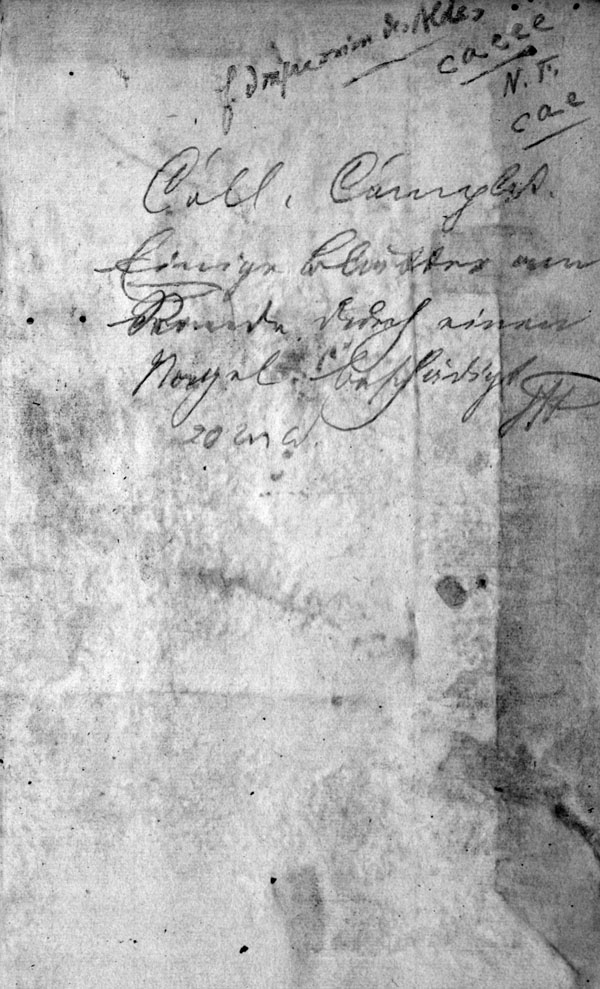 f. Impression des Aldes
caeee
N. T.
cae
Coll. Complet.
Einige Blätter am
Rande durch einen
Nagel beschädigt
20 M